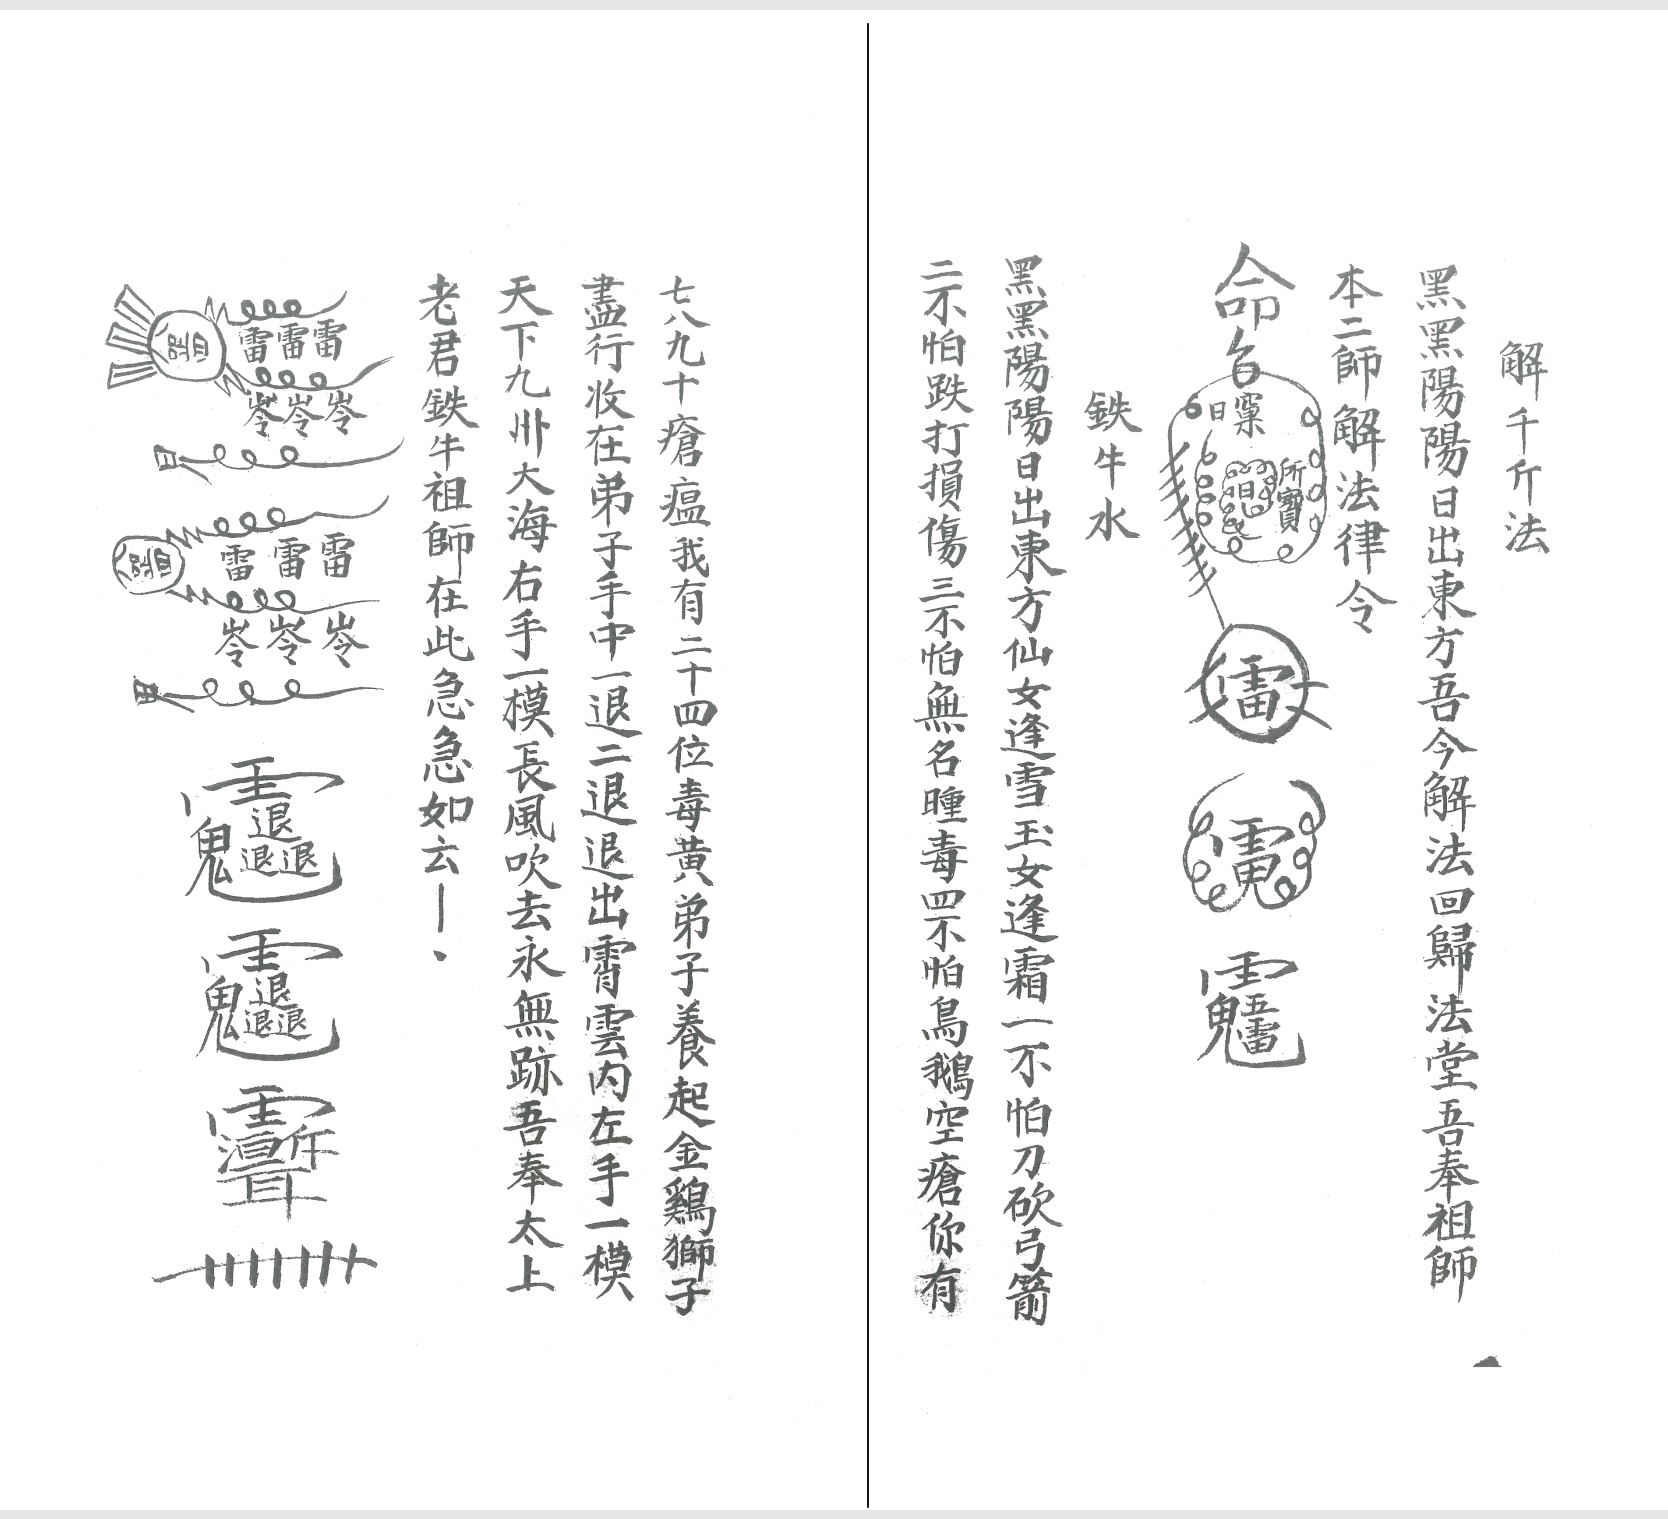 解千斤法
黑黑陽陽日出東方吾今解法回歸法堂吾奉祖師
本二師解法律令
命
日
所寶
日
鉄牛水
黑黑陽陽日出東方仙女逢雪玉女逢霜一不怕刀砍弓箭
二不怕跌打損傷三不怕無名瞳毒四不怕鳥鵝空瘡你有
七八九十瘡瘟我有二十四位毒黃弟子養起金鷄獅子
盡行收在弟子手中一退二退退出霄雲内左手一模
天下九州大海右手一模長風吹去永無跡吾奉太上
老君鉄牛祖師在此急急如云
雷雷雷
岺岺岺
雷雷雷
岺岺岺
鬼退退退
鬼退退退